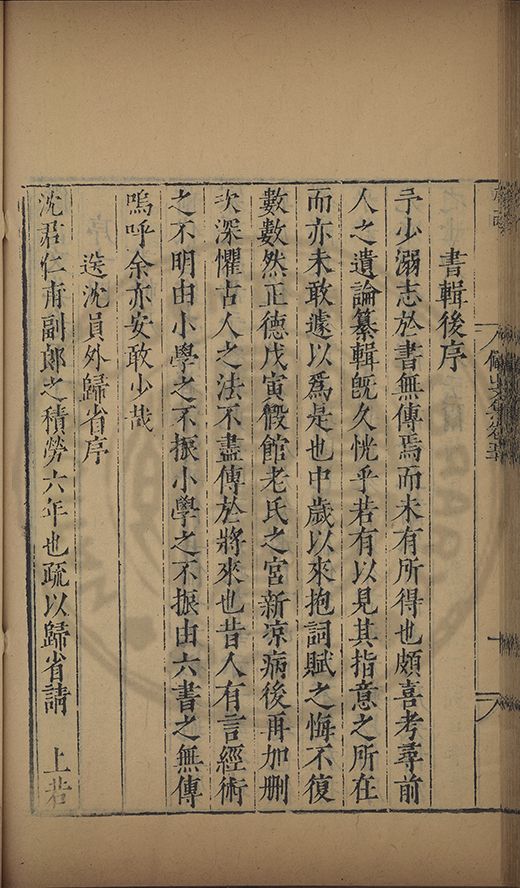 書輯後序
予少溺志於書無傳焉而未有所得也頗喜考尋前
人之遺論纂輯既久恍乎若有以見其指意之所在
而亦未敢遽以爲是也中歲以來抱詞賦之悔不復
數數然正德戊寅假館老氏之宮新凉病後再加刪
次深懼古人之法不盡傳於將來也昔人有言經術
之不明由小學之不振小學之不振由六書之無傳
嗚呼余亦安敢少哉
送沈員外歸省序
沈君仁甫副郎之積勞六年也疏以歸省請 上若